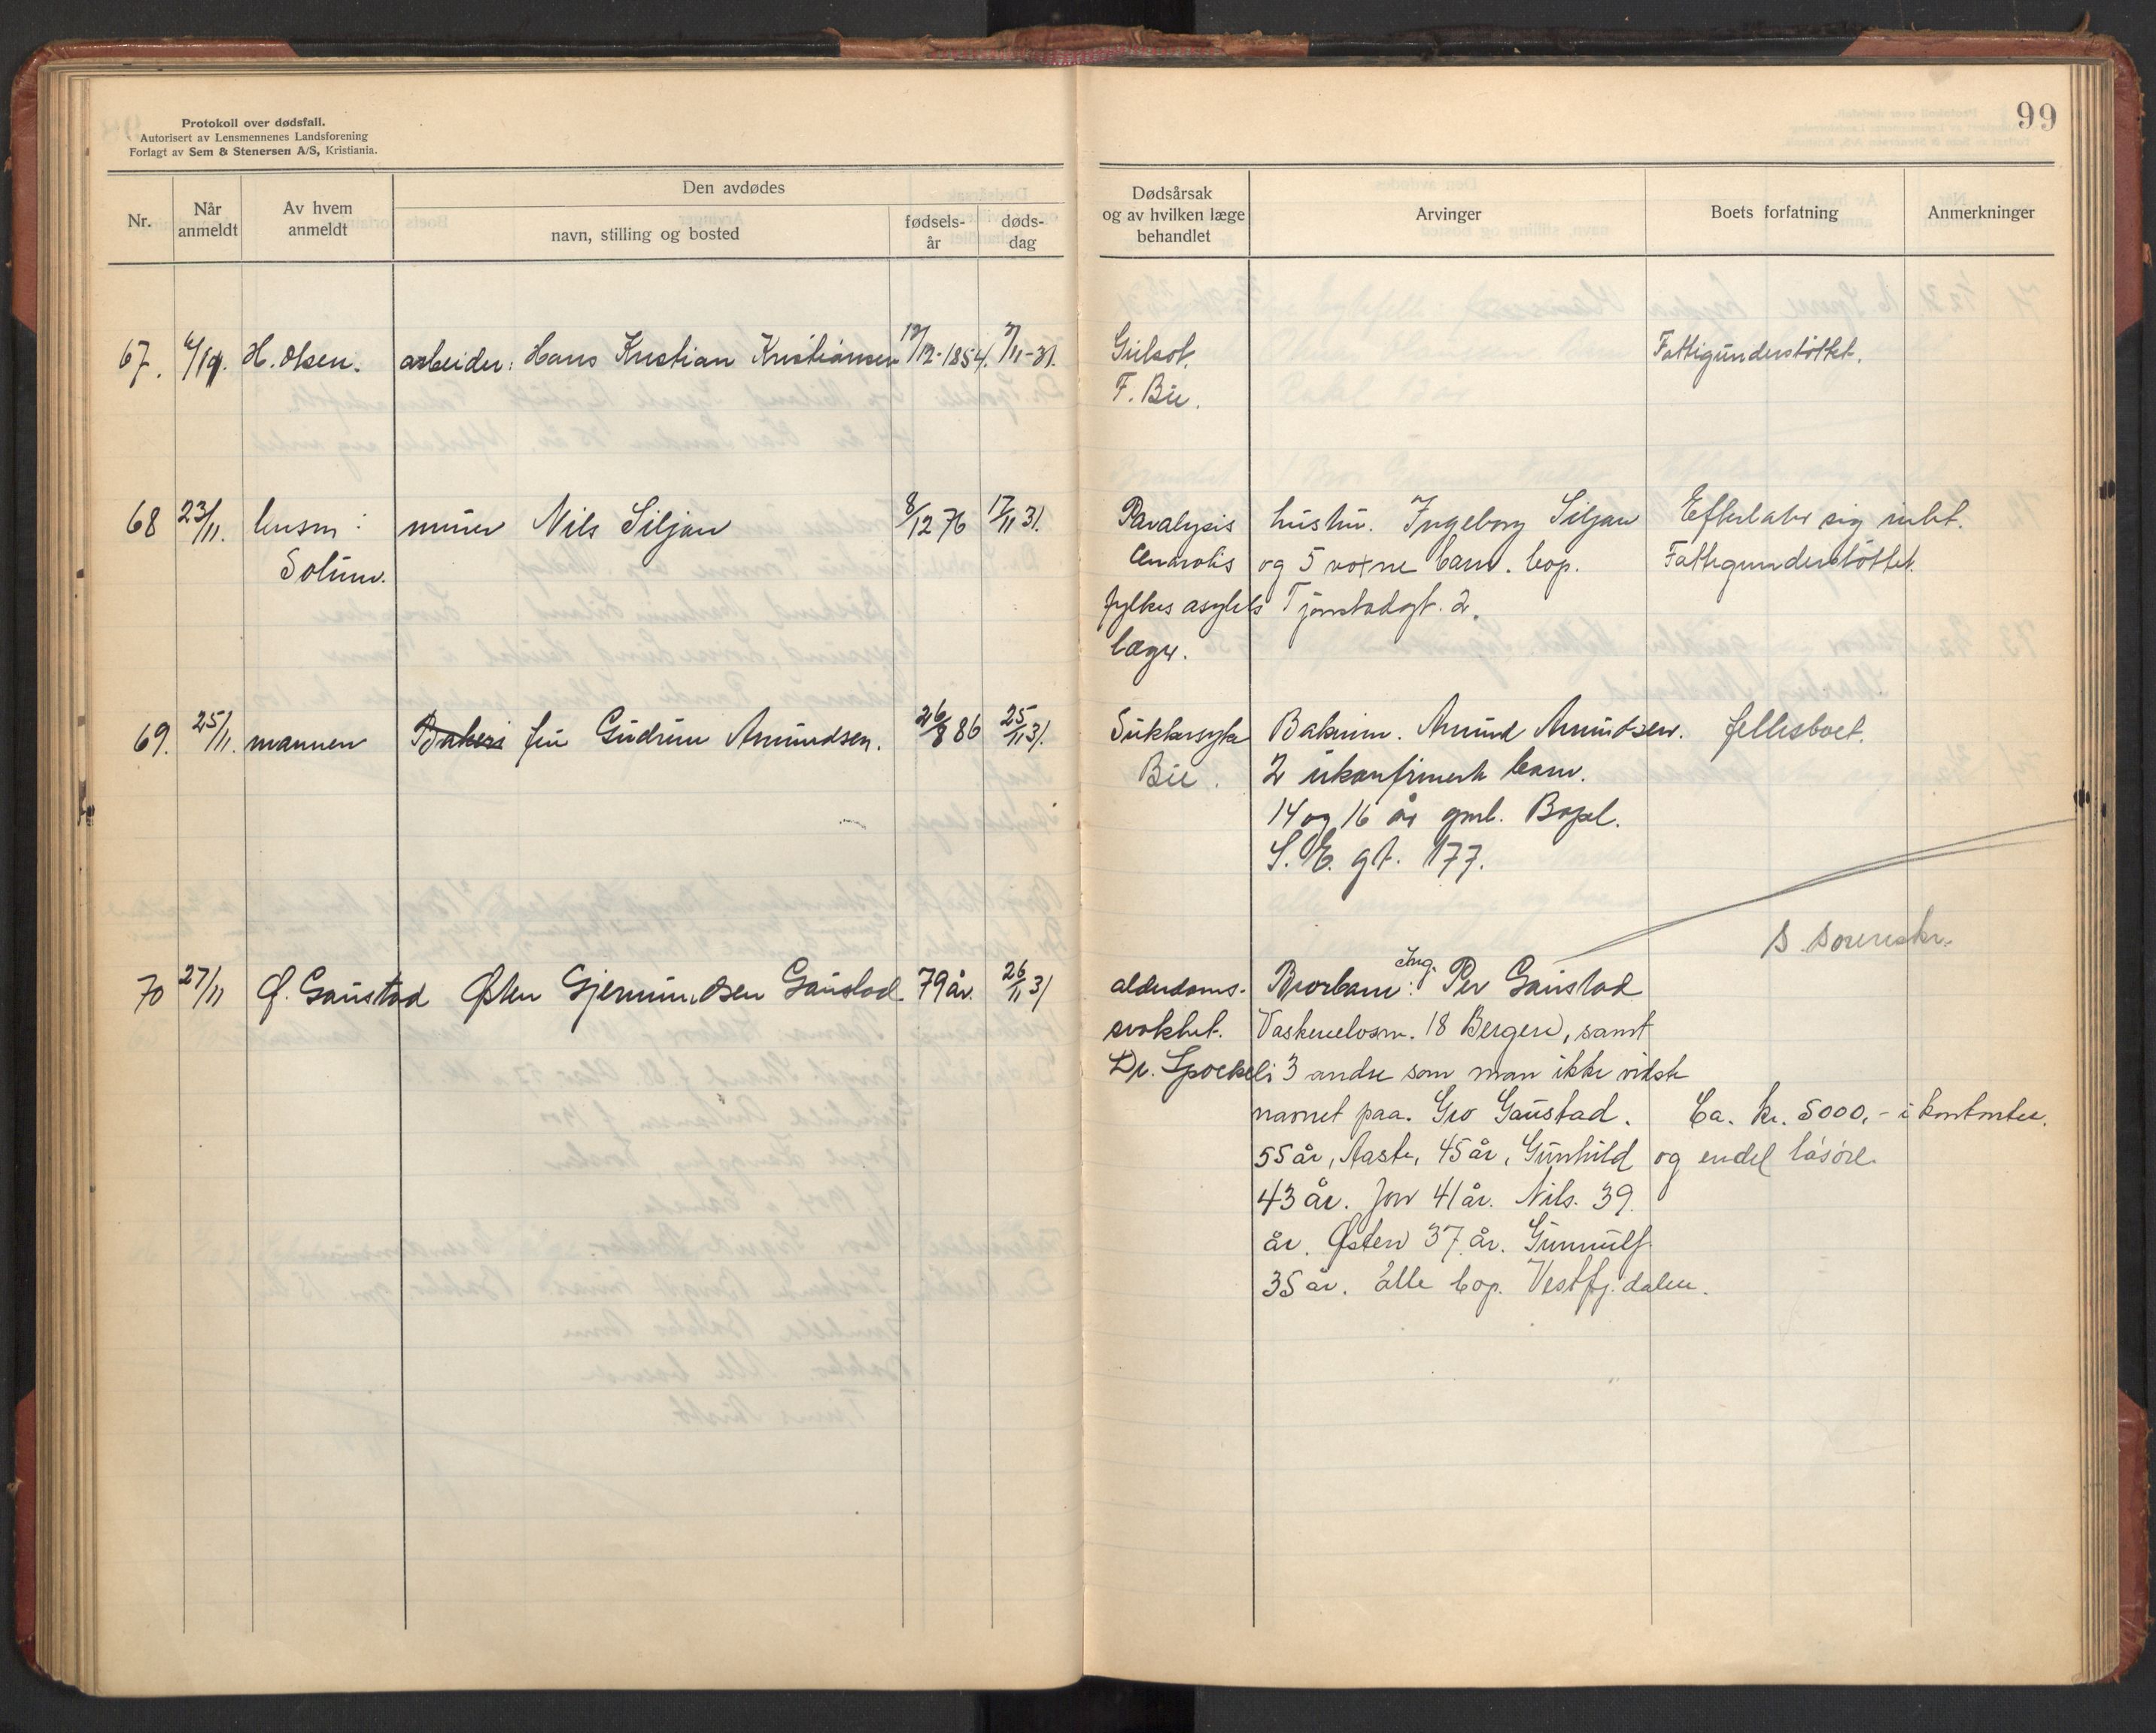 Protokoll over dødsfall.
Autorisert av Lensmennenes Landsforening
Forlagt av Sem & Stenersen A/S, Kristiania.
99
Nr.
Når anmeldt
Av hvem anmeldt
Den avdødes
navn, stilling og bosted
fødsels-år
døds-dag
Dødsårsak og av hvilken læge behandlet
Arvinger
Boets forfatning
Anmerkninger
67. H. Olsen. arbeider: Hans Kristian Kristiansen 17/12-1854. 7/11-31. Gulsot. Fattigunderstöttet.
F. Bie.
68 23/11. lensm: murer Nils Siljan 8/12 76 17/11 31. Paralysis hustru. Ingeborg Siljan Efterlater sig intet.
Solum. og 5 voxne barn. bop. Fattigunderstöttet.
fylkes asylets Tjønstadgt. 2.
læge.
69. 25/11. mannen Bakers fru Gudrun Amundsen. 26/8 86 25/11 31. Sukkersyke Bakerm. Amund Amundsen. fellesboet.
Bie. 2 ukonfirmerte barn.
14 og 16 år gml. Bopel.
S. E. gt. 177.
S. Sorenskr.
70 27/11 Ø. Gaustad Østen Gjermundsen Gaustad 79 år. 26/11 31 alderdoms- Brorbarn: Ing. Per Gaustad
svakhet. 18 Bergen, samt
Dr. 3 andre som man ikke visste
navnet paa. Gro Gaustad. Ca. kr. 5000,- i kontanter.
55 år, Aaste, 45 år, Gunhild og endel løsøre.
43 år. Jon 41 år. Nils. 39.
år. Østen 37 år. Gunnulf
35 år. alle bop. Vestfj.dalen.